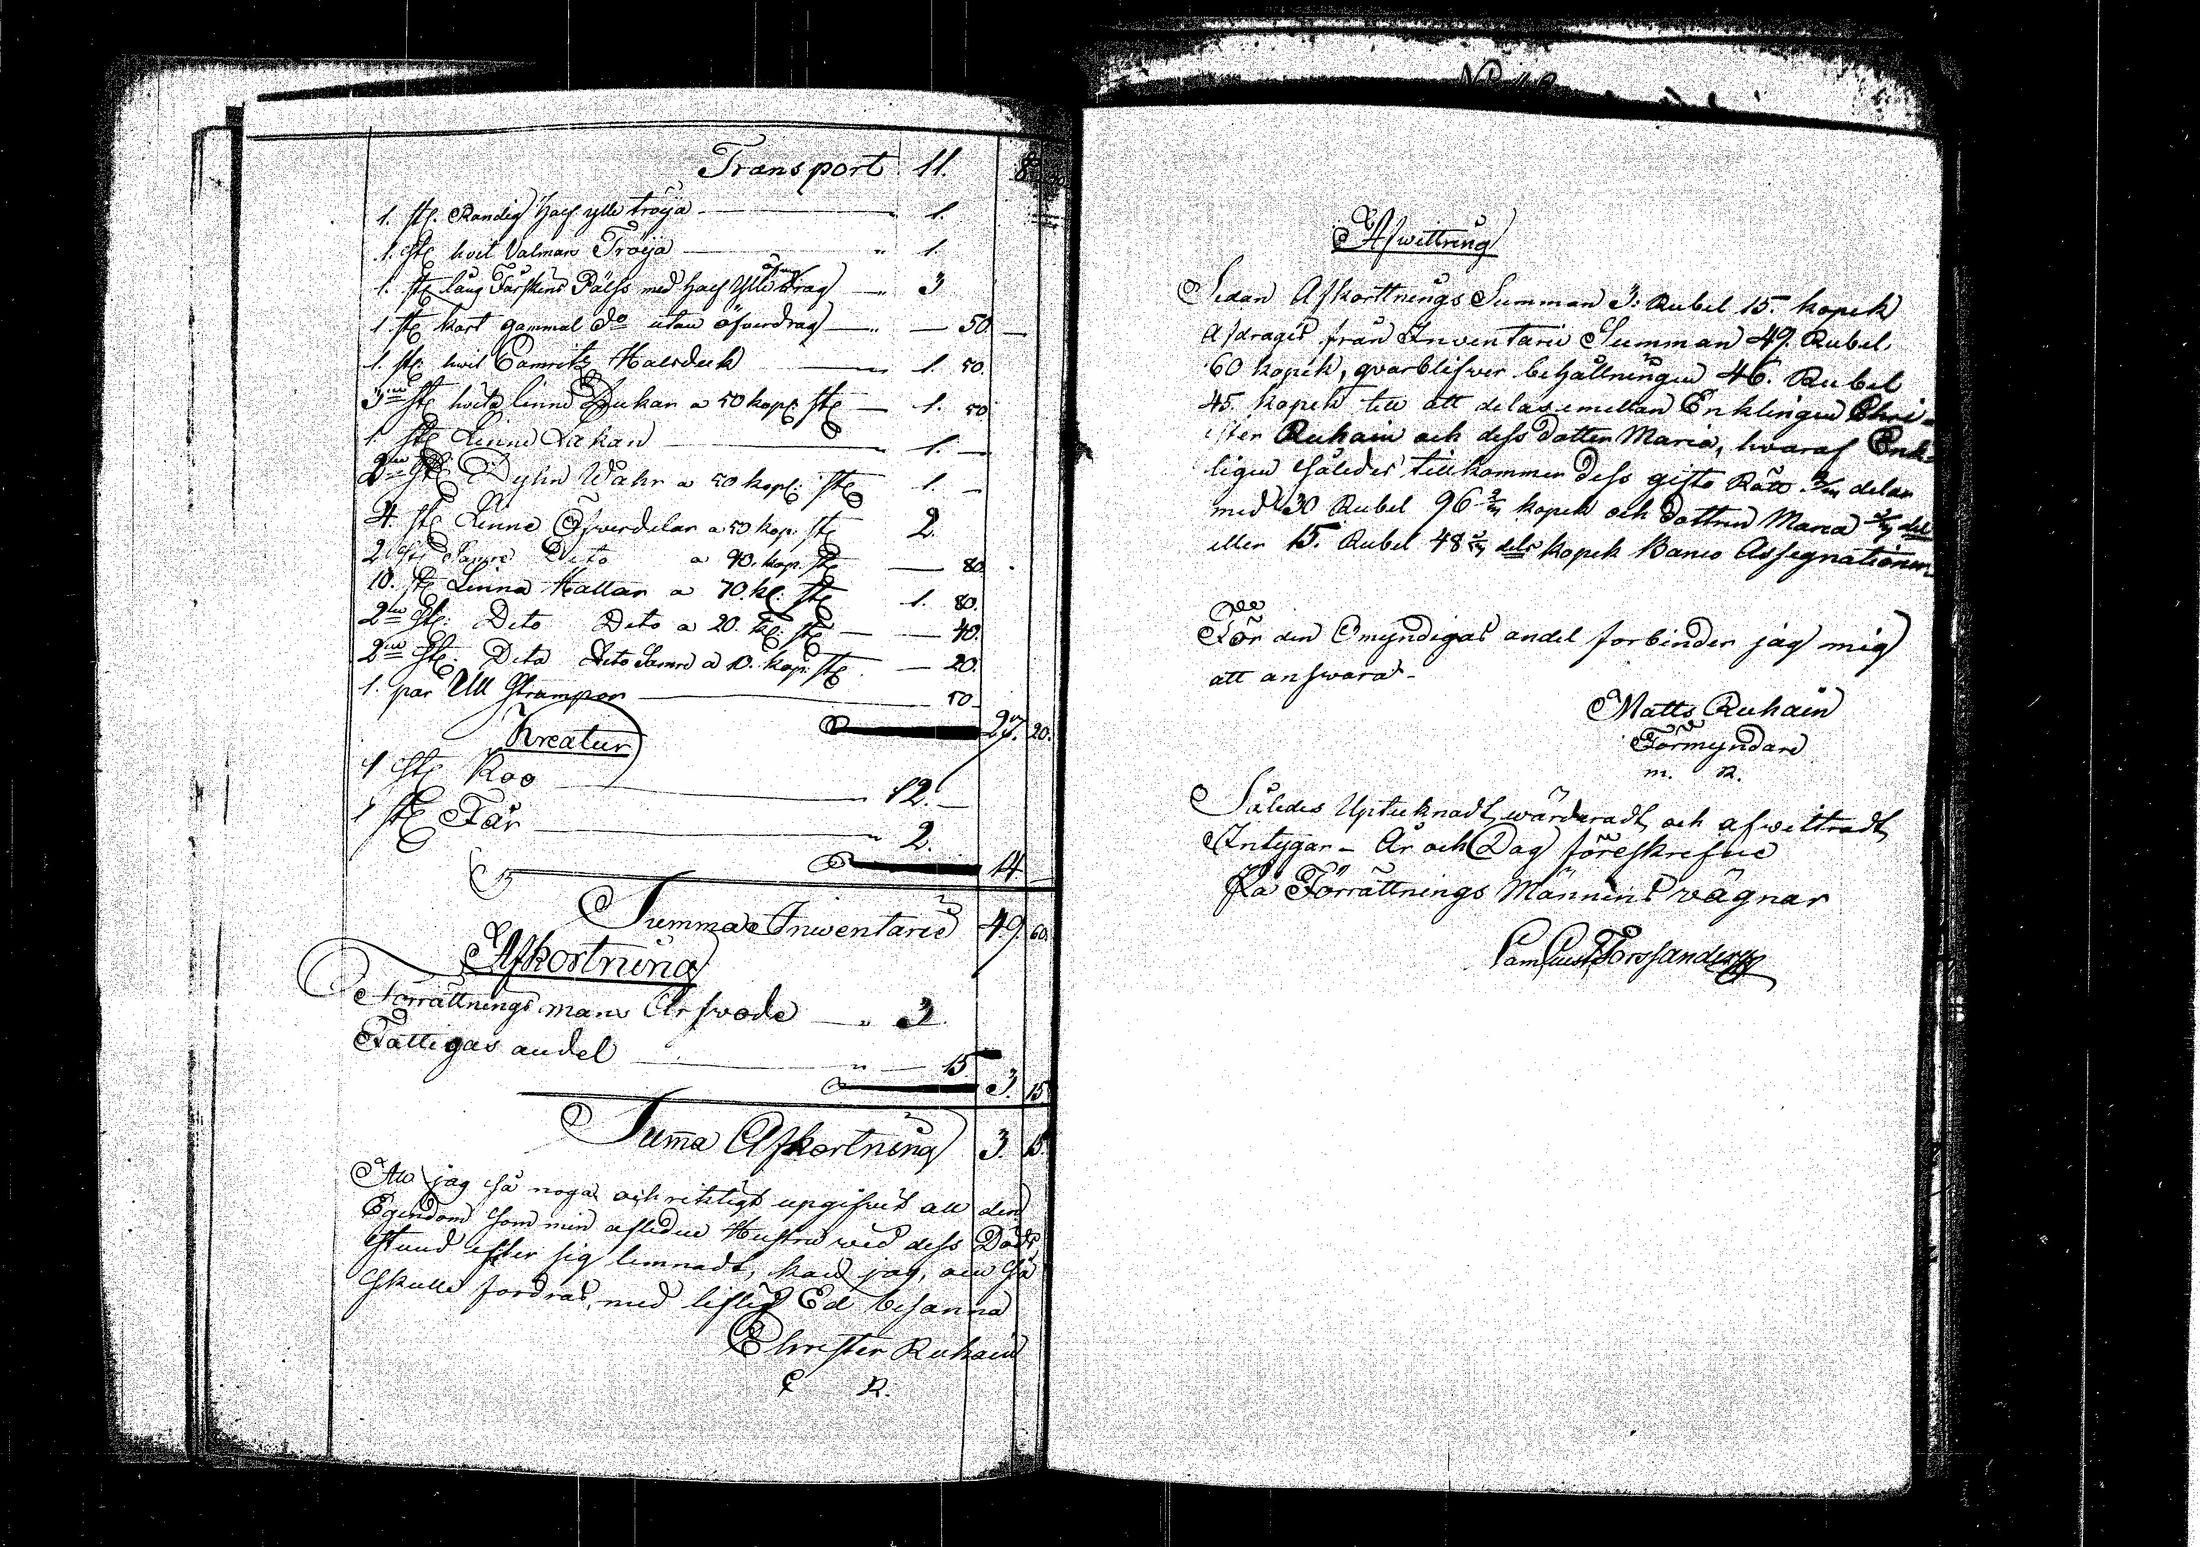 Transport 11. 8
1. st. Randig half ylle tröija — 1.
1. st. hvit Valman Tröija — 1.
1. st. lång Fårskins Päls med half Ylle öfverdrag — 3
1. st. kort gammal do utan öfverdrag — 50
1. st. hvit Camritz Halsduk — 1. 50.
3ne st. hvita linne Dukar a 50 kop. st. — 1. 50
1 st. Linne Lakan — 1. —
2ne st. Dyhn Wahr a 50 kop: st. 1. —
4. st. Linne Öfverdelar a 50 kop. st. 2.
2 st. Samre Dito a 40. kop. st. — 80.
10. st. Linne Hattar a 70. k. st. 1. 80.
2ne st: Dito Dito a 20. k: st. — 40.
2ne st. Dito Dito Samre a 10. kop: st. — 20.
1. par Ull Strumpor — 50
27. 20.
Kreatur
1 st. Koo — 12. —
1 st. Får — 2.
14
Summa Inventarie 49. 60.
Afkortning
Förrättnings mans Arfvode — 3.
Fattigas andel — 15
3. 15
Summa Afkortning 3. 15.
Att jag så noga och riktigt upgifvit all den
Egendom som min aflidne Hustru vid dess Döds
stund efter sig lemnadt, kan jag, om så
skulle fordras, med liflig Ed besanna
Christer Ruhain
C R.
Afwittring
Sedan Afkorttnings Summan 3: Rubel 15. kopek
afdragits från Inventarii Summan 49. Rubel
60 kopek, qvarblifver behållningen 46. Rubel
45. kopek till att delas emellan Enklingen Chri-
ster Ruhain och dess Dotter Maria, hvaraf Enk-
lingen således tillkommer Dess gifto Rätt 2/3 delar
med 30 Rubel 96 2/3 kopek och Dottren Maria 1/3 del
eller 15. Rubel 48 1/3 dels kopek Banco Assegnationer
För den Omyndigas andel forbinder jag mig
att answara.
Matts Ruhain
Förmyndare
m. R.
Således Uptecknadt, wärderadt, och afwittradt,
Intygar — År och Dag föreskrefne
På Förrättnings Männens vägnar
Forssander